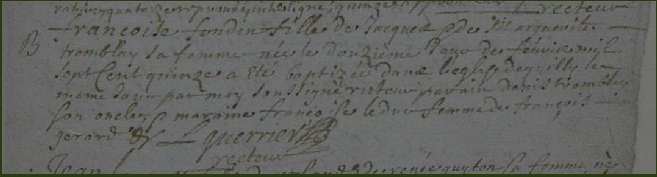 recteur
B francoise fondin fille de Jacques et de Marguerite
tremblay sa femme née le douzieme Jour de feuvrie mil
sept Cent quinze a eté baptizée dans leglise de quilly le
meme Jour par moy soussigné recteur parain denis tremblay
son oncle et maraine francoise leduc femme de francois
gerard L Guerrier
recteur
Jean de renée guyton sa femme né